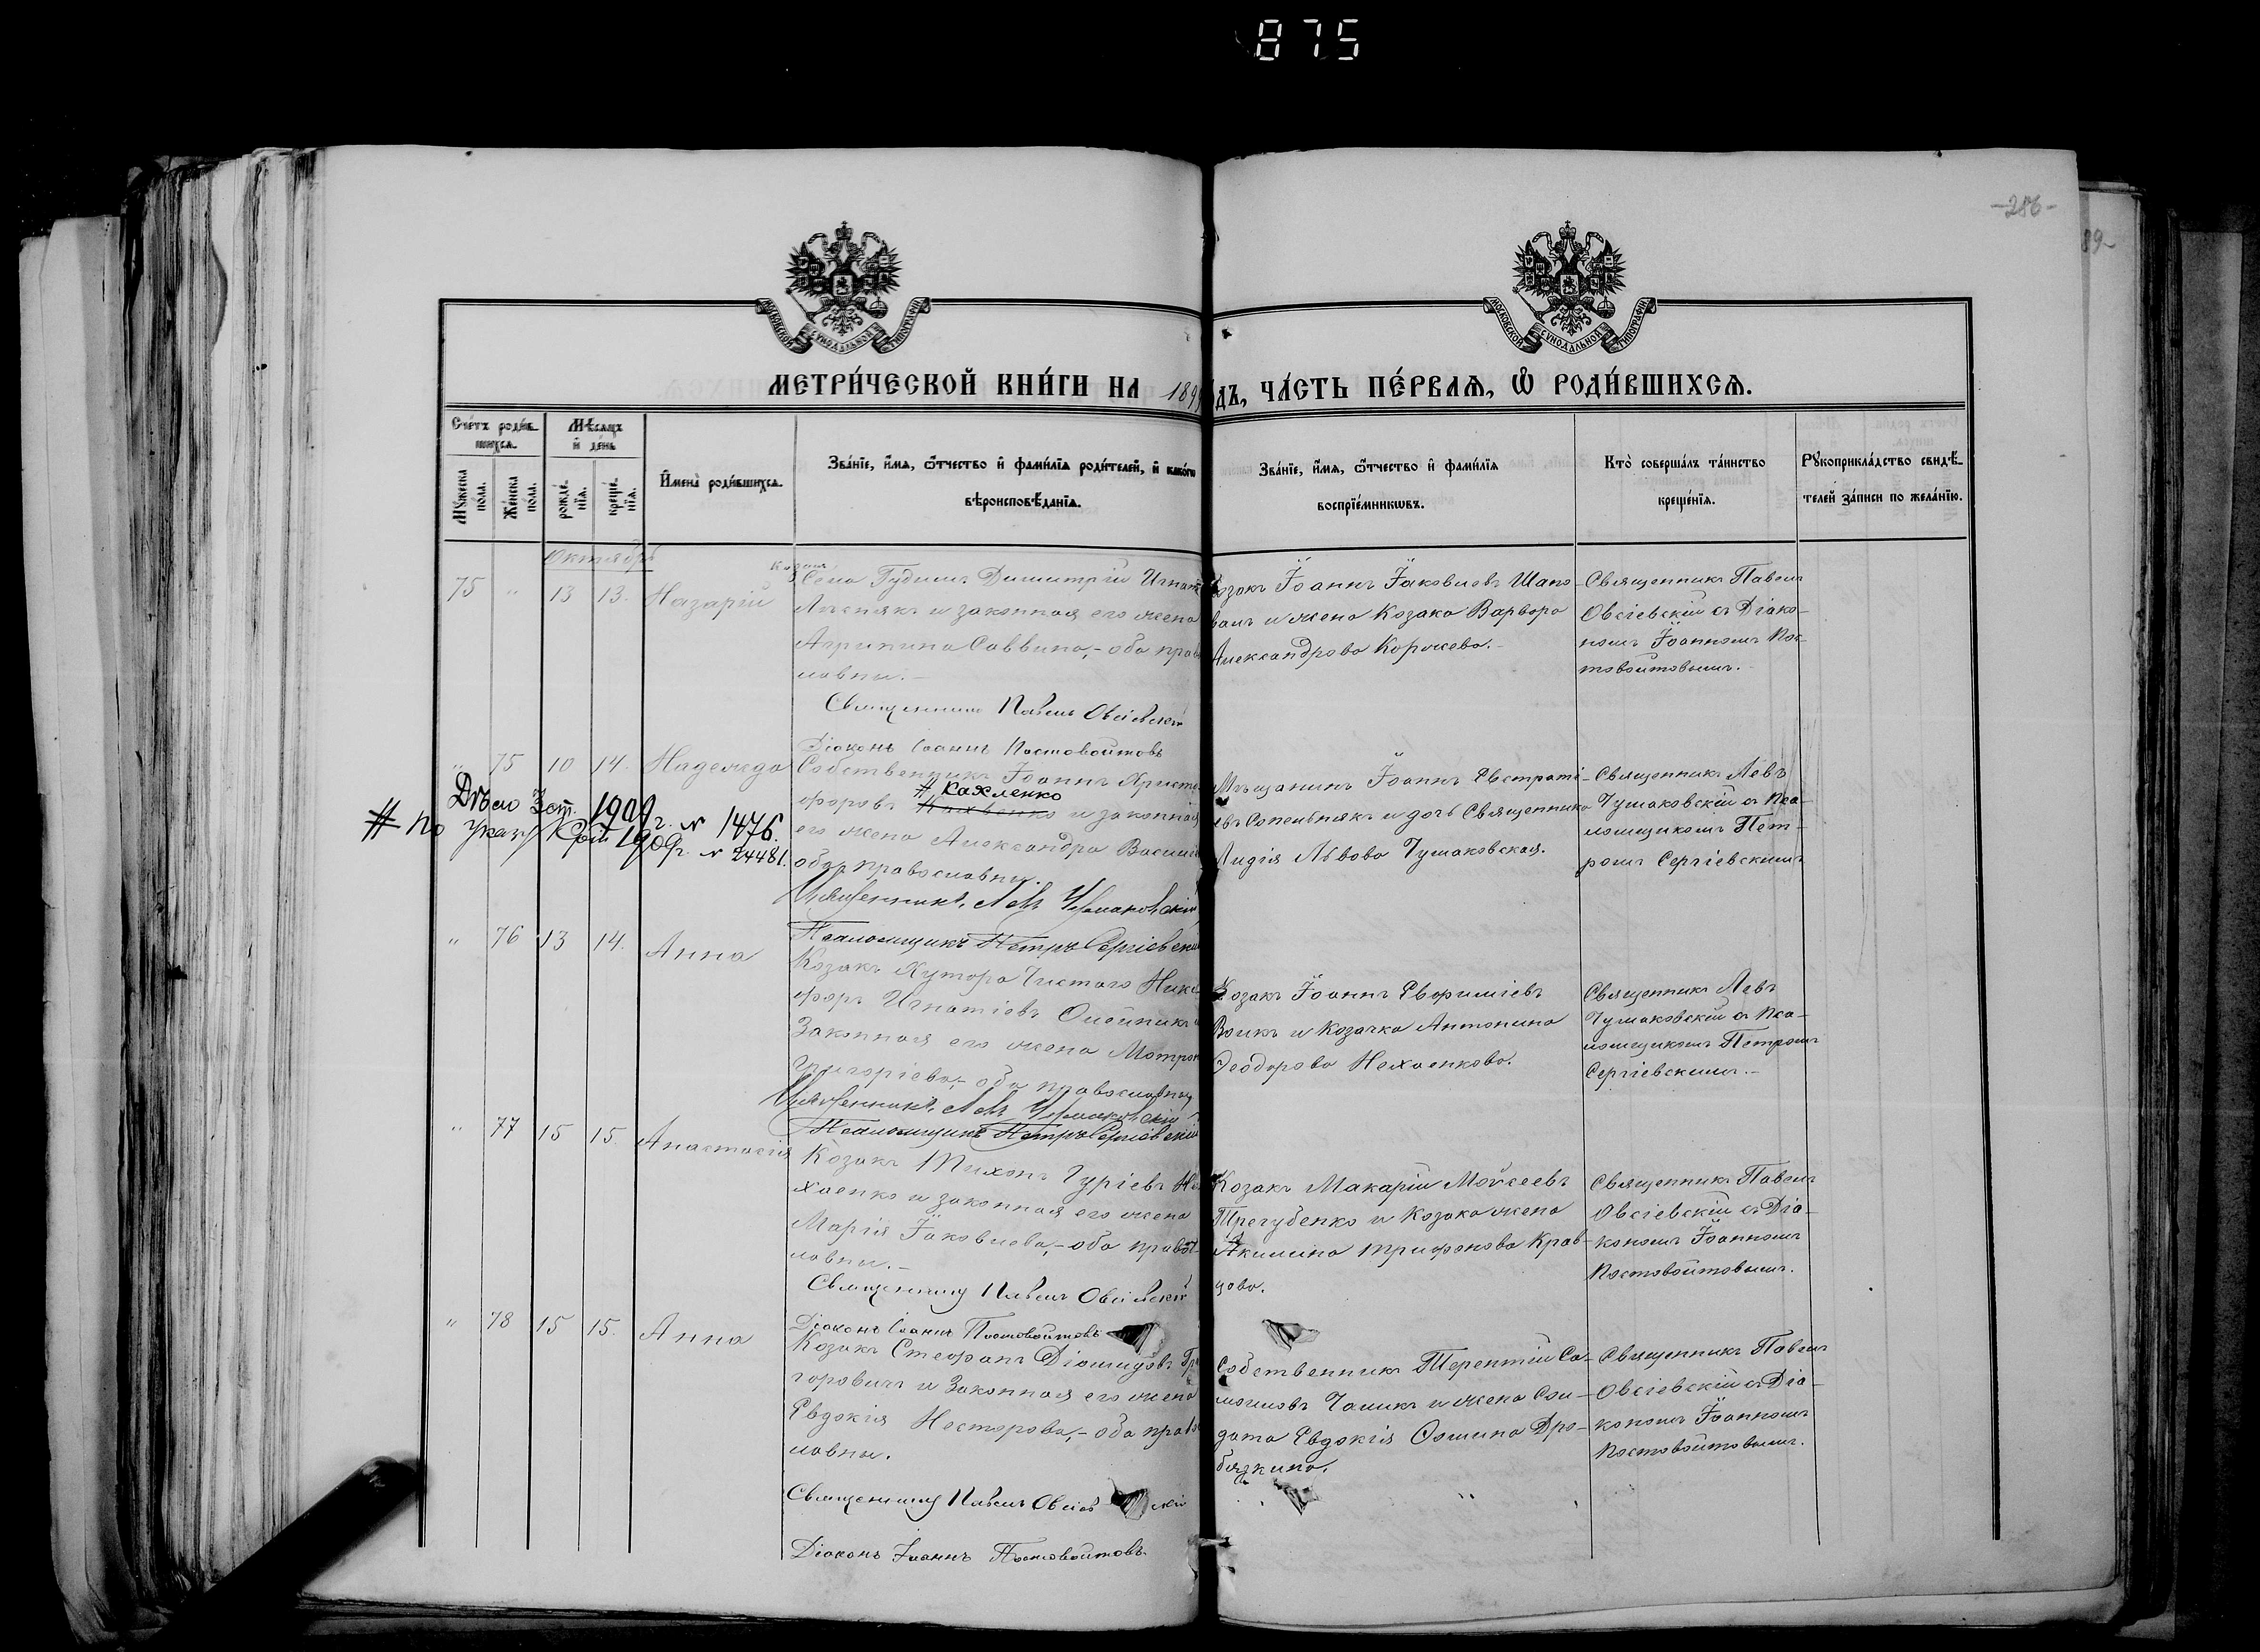 875
-286-
89-
МОСКОВСКОЙ СѴНОДАЛЬНОЙ ТИПОГРАФІИ
МОСКОВСКОЙ СѴНОДАЛЬНОЙ ТИПОГРАФІИ
МЕТРИ́ЧЕСКОЙ КНИ́ГИ НА 189 ДЪ, ЧА́СТЬ ПЕ́РВАѦ, Ѡ҆ РОДИ́ВШИХСѦ.
Сче́тъ роди́в-
шихсѧ.
Мѣ́сѧцъ
и҆ де́нь
Мꙋ́жеска
по́ла.
Же́нска
по́ла.
рожде́-
нїѧ.
креще́-
нїѧ.
И҆мена̀ роди́вшихсѧ.
Зва́нїе, и҆́мѧ, ѻ҆́тчество и҆ фами́лїѧ роди́телей, и҆ како́гѡ
вѣроисповѣ́данїѧ.
Зва́нїе, и҆́мѧ, ѻ҆́тчество и҆ фами́лїѧ
воспрїе́мникѡвъ.
Кто̀ соверша́лъ та́инство
креще́нїѧ.
Рꙋкоприкла́дство свидѣ́-
телей за́писи по жела́нїю.
Октябрь
75 " 13 13. Назарій
Козакъ
Села Гудимъ Димитрій Игнат
и законная его жена
Агрипина Саввина,- оба прав
лавны.-
Священникъ Павелъ Овсіевскій
Діаконъ Іоаннъ Постовойтовъ
Козакъ Іоаннъ Іаковлевъ Шапо-
валъ и жена Козака Варвара
Александрова Коржева.-
Священникъ Павелъ
Овсіевскій съ Діако-
номъ Іоанномъ Пос-
товойтовымъ.
" 75 10 14. Надежда
Собственникъ Іоаннъ Христо
форовъ # Кахленко и законная
его жена Александра Васил
оба православны.
Священникъ Левъ Чумаковскій
Псаломщикъ Петръ Сергіевскій
Дѣло 3 ст. 1909 г. № 1476.
# По указу 1909 г. № 24481.
Мѣщанинъ Іоаннъ Евстраті-
евъ Сопельнякъ и дочь Священника
Лидія Львова Чумаковская.
Священникъ Левъ
Чумаковскій съ Пса-
ломщикомъ Пет-
ромъ Сергіевскимъ
" 76 13 14. Анна
Козакъ Хутора Чистаго Ники
форъ Игнатіевъ Олейникъ и
Законная его жена Матрон
Григоріева,- оба православны
Священникъ Левъ Чумаковскій
Псаломщикъ Петръ Сергіевскій
Козакъ Іоаннъ Евфиміевъ
Волкъ и Козачка Антонина
Феодорова Нехаенкова.
Священникъ Левъ
Чумаковскій съ Пса-
ломщикомъ Петромъ
Сергіевскимъ.-
" 77 15 15. Анастасія
Козакъ Тихонъ Гуріевъ Не
хаенко и законная его жена
Марія Іаковлева,- оба правос
лавны.-
Священникъ Павелъ Овсіевскій
Діаконъ Іоаннъ Постовойтовъ
Козакъ Макарій Мойсеевъ
Трегубенко и Козака жена
Акилина Трифонова Крав-
цова.
Священникъ Павелъ
Овсіевскій съ Діа-
кономъ Іоанномъ
Постовойтовымъ.
" 78 15 15. Анна
Козакъ Стефанъ Діомидовъ Гри
горовичъ и Законная его жена
Евдокія Несторова,- оба право
лавны.
Священникъ Павелъ Овсіев кій
Діаконъ Іоаннъ Постовойтовъ.
Собственникъ Терентій Са-
мойловъ Чаликъ и жена Сол-
дата Евдокія Фомина Дро-
бязкина.
Священникъ Павелъ
Овсіевскій съ Діа-
кономъ Іоанномъ
Постовойтовымъ.